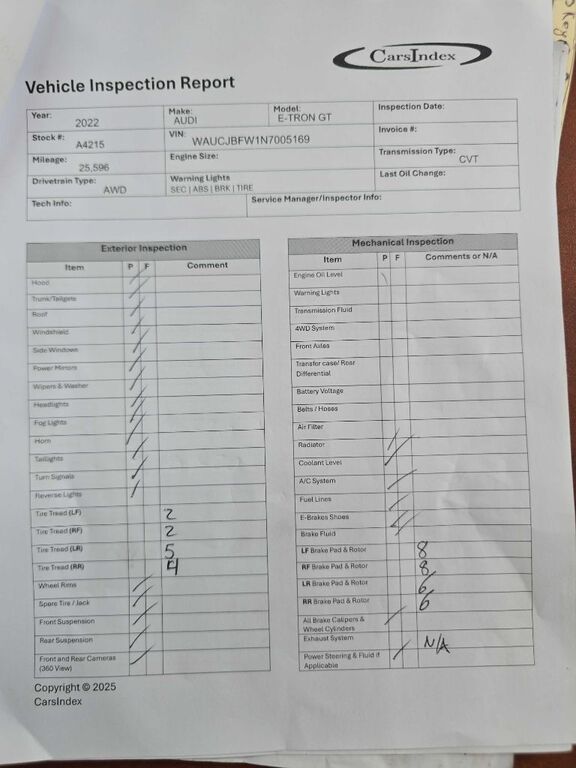 CarsIndex
Vehicle Inspection Report
Year: 2022 Make: AUDI Model: E-TRON GT Inspection Date:
Stock #: A4215 VIN: WAUCJBFW1N7005169 Invoice #:
Mileage: 25,596 Engine Size: Transmission Type: CVT
Drivetrain Type: AWD Warning Lights SEC | ABS | BRK | TIRE Last Oil Change:
Tech Info: Service Manager/Inspector Info:
Exterior Inspection
Item P F Comment
Hood
Trunk/Tailgate
Roof
Windshield
Side Windows
Power Mirrors
Wipers & Washer
Headlights
Fog Lights
Horn
Taillights
Turn Signals
Reverse Lights
Tire Tread (LF) 2
Tire Tread (RF) 2
Tire Tread (LR) 5
Tire Tread (RR) 4
Wheel Rims
Spare Tire / Jack
Front Suspension
Rear Suspension
Front and Rear Cameras
(360 View)
Mechanical Inspection
Item P F Comments or N/A
Engine Oil Level
Warning Lights
Transmission Fluid
4WD System
Front Axles
Transfer case/ Rear
Differential
Battery Voltage
Belts / Hoses
Air Filter
Radiator
Coolant Level
A/C System
Fuel Lines
E-Brakes Shoes
Brake Fluid
LF Brake Pad & Rotor 8
RF Brake Pad & Rotor 8
LR Brake Pad & Rotor 6
RR Brake Pad & Rotor 6
All Brake Calipers &
Wheel Cylinders
Exhaust System N/A
Power Steering & Fluid if
Applicable
Copyright © 2025
CarsIndex